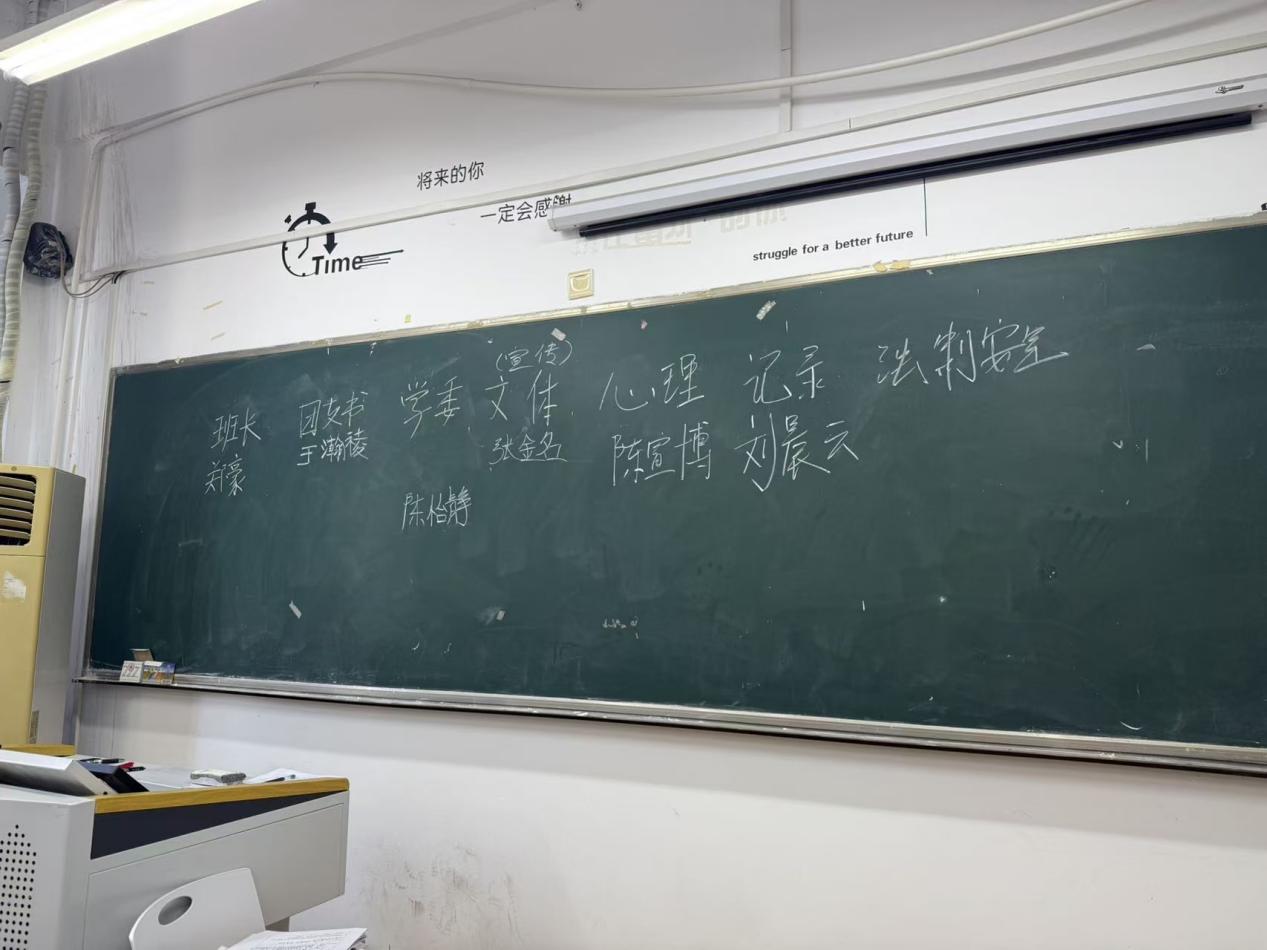 将来的你
一定会感谢
Time
struggle for a better future
(宣传)
班长 团支书 学委 文体 心理 记录 法制安全
郑豪 于瀚稜 陈怡静 张金名 陈宣博 刘晨云